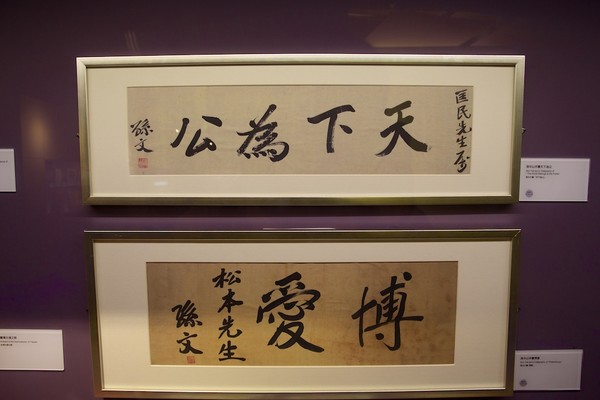 匡民先生屬
天下為公
孫文
博愛
松本先生
孫文